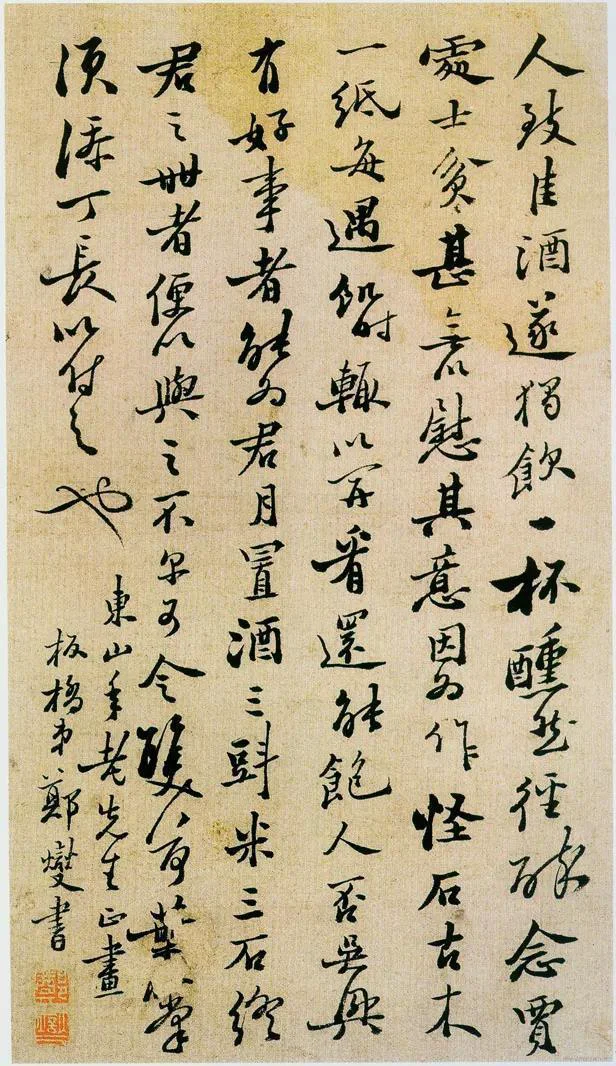 人致佳酒遂獨飲一杯醺然徑醉念賈
處士貧甚无以慰其意因為作怪石古木
一紙每遇飢時輒以開看還能飽人否吳興
有好事者能為君月置酒三㪷米三石終
君之世者便以與之不尔可令雙荷葉
須添丁長以付之也
東山年老先生正畫
板橋弟鄭燮書